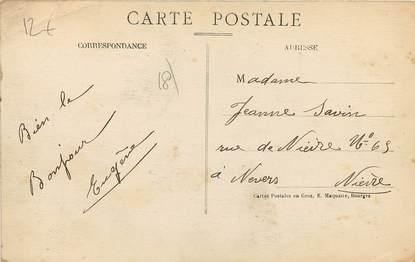 12€
CARTE POSTALE
CORRESPONDANCE
ADRESSE
18
Bien le
Bonjour
Eugène
Madame
Jeanne Savin
rue de Nièvre No 65
à Nevers
Nièvre
Cartes Postales en Gros, E. Maquaire, Bourges